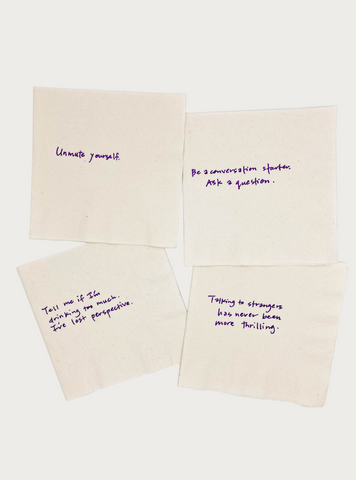 Unmute yourself.
Be a conversation starter.
Ask a question.
Tell me if I'm
drinking too much.
I've lost perspective.
Talking to strangers
has never been
more thrilling.